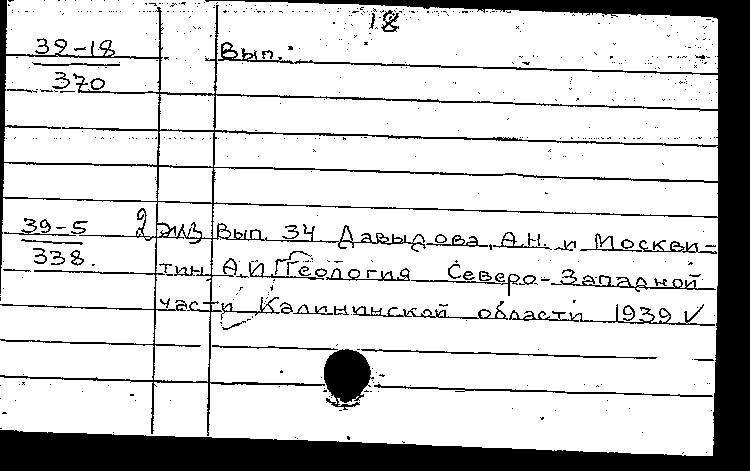 18
39-18 Вып.
370
39-5 2 экз Вып. 34 Давыдова, А.Н. и Москви-
338. тин, А.И. Геология Северо-Западной
части Калининской области 1939 ✓